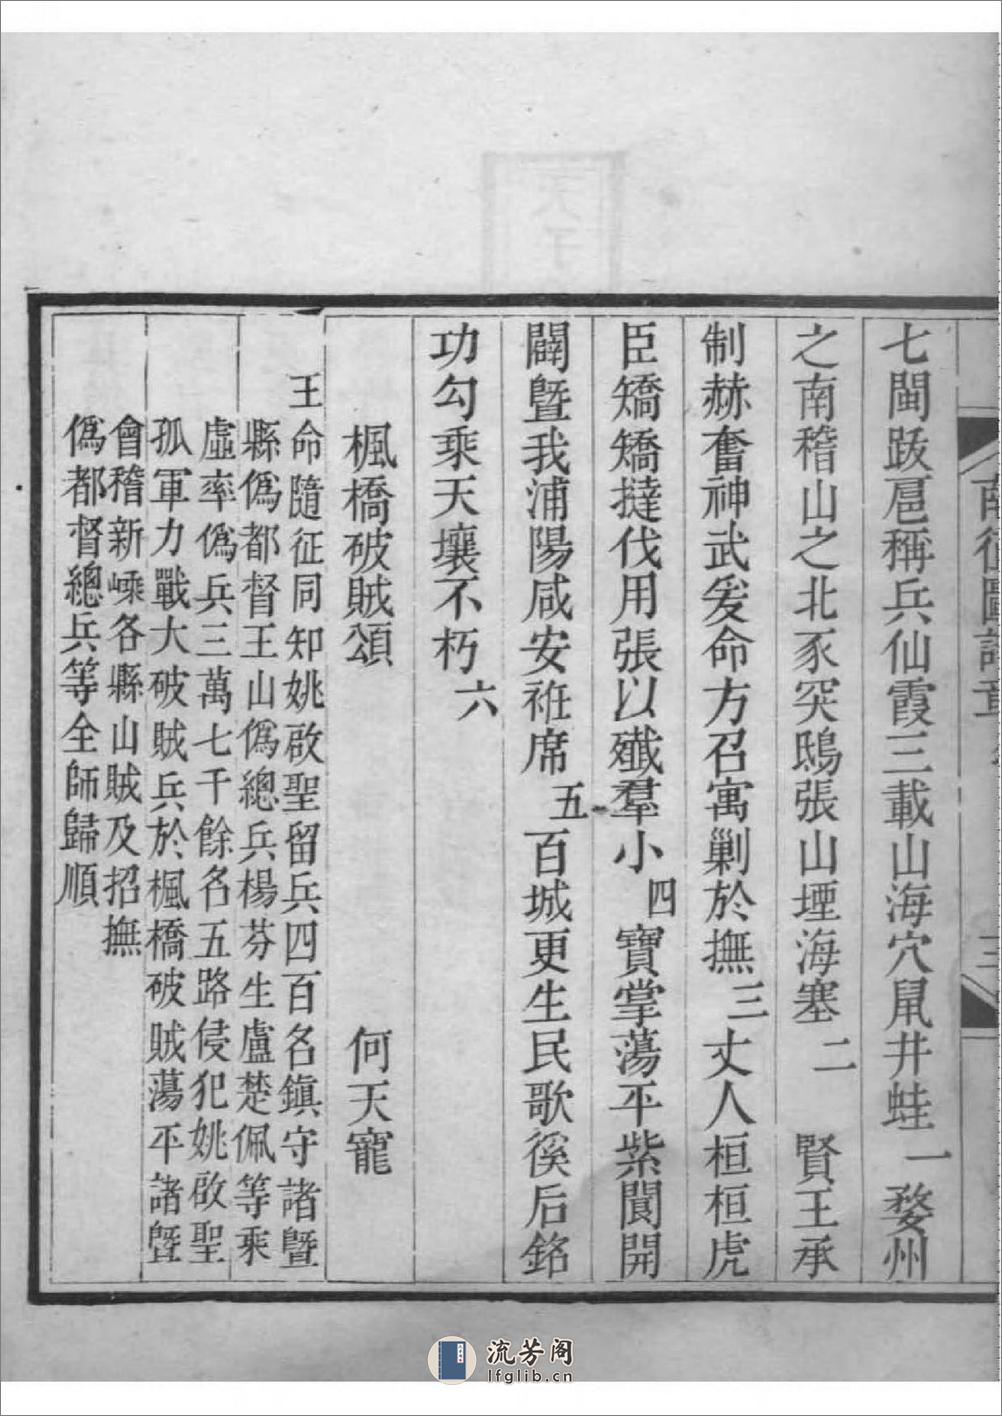 七閩跋扈稱兵仙霞三載山海穴鼠井蛙一婺州
之南稽山之北豕突鴟張山堙海塞二 賢王承
制赫奮神武爰命方召寓剿於撫三丈人桓桓虎
臣矯矯撻伐用張以殲羣小四寶掌蕩平紫閬開
闢暨我浦陽咸安袵席五百城更生民歌徯后銘
功勾乘天壤不朽六
楓橋破賊頌 何天寵
王命隨征同知姚啟聖留兵四百名鎮守諸暨
縣僞都督王山僞總兵楊芬生盧楚佩等乘
虛率僞兵三萬七千餘名五路侵犯姚啟聖
孤軍力戰大破賊兵於楓橋破賊蕩平諸暨
會稽新嵊各縣山賊及招撫
僞都督總兵等全師歸順
三
流芳阁
lfglib.cn